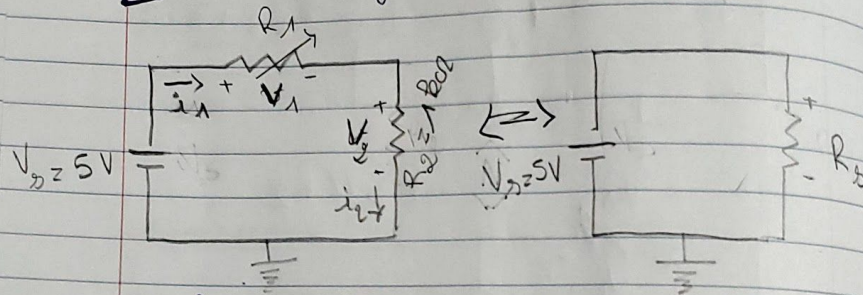 R1
i1 + V1 -
Vs = 5V
+ V2 -
R2 =
i2
<=>
Vs=5V
+
-
Rs